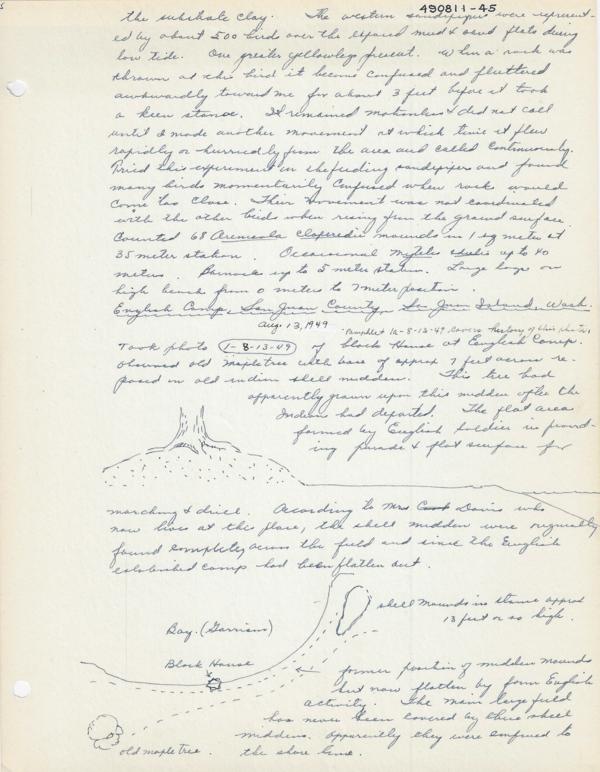 490811-45
the substrate clay. The western sandpipers were represent-
ed by about 500 birds over the exposed mud & sand flats during
low tide. One greater yellowlegs present. When a rock was
thrown at this bird it became confused and fluttered
awkwardly toward me for about 3 feet before it took
a keen stance. It remained motionless & did not call
until I made another movement at which time it flew
rapidly or hurriedly from the area and called continuously.
Tried this experiment on the feeding sandpipers and found
many birds momentarily confused when rocks would
come too close. Their movement was not coordinated
with the other birds when rising from the ground surface.
Counted 68 Arenicola claparedii mounds in 1 sq meter at
35 meter station. Occasional Mytilus edulis up to 40
meters. Barnacles up to 5 meter station. Large logs on
high beach from 0 meters to 7 meter position.
English Camp, San Juan County, San Juan Island, Wash.
Aug. 13, 1949
Pamphlet 1a-8-13-49 covers history of this photo.
Took photo 1-8-13-49 of block House at English Camp.
Observed old Maple tree with base of approx 7 feet across re-
posed on old indian shell midden. This tree had
apparently grown upon this midden after the
Indians had departed. The flat area
formed by English soldiers in provid-
ing parade & flat surface for
marching & drill. According to Mrs Davis who
now lives at this place, the shell midden were originally
found completely across the field and since the English
established camp had been flatten out.
shell mounds in stance approx
13 feet or so high.
Bay. (Garrison)
Block House
former position of midden mounds
but now flatten by form English
activity. The main large field
has never been covered by these shell
middens. apparently they were confined to
the shore line.
old maple tree.